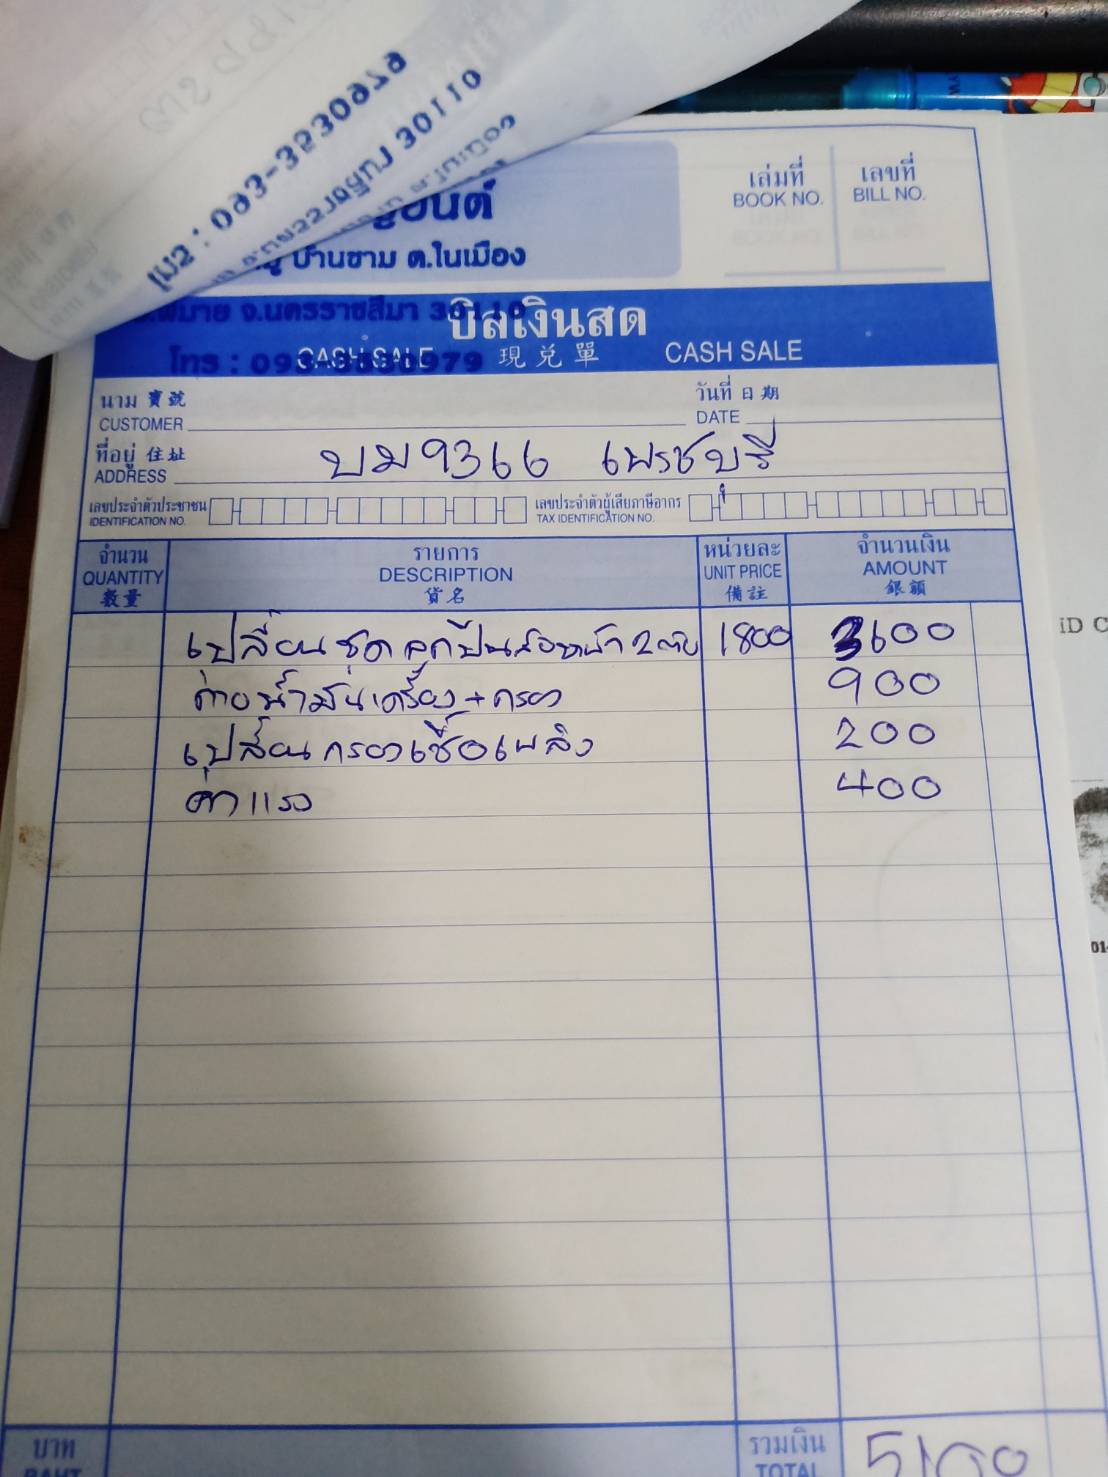 โทร : 093-3230979
30110
ยนต์
บ้านขาม ต.ในเมือง
จ.นครราชสีมา 30110
โทร : 093-3230979
เล่มที่
BOOK NO.
เลขที่
BILL NO.
บิลเงินสด
CASH SALE 現兌單 CASH SALE
นาม 寶號
CUSTOMER
วันที่ 日期
DATE
ที่อยู่ 住址
ADDRESS
บม9366 เพรชบุรี
เลขประจำตัวประชาชน
IDENTIFICATION NO.
เลขประจำตัวผู้เสียภาษีอากร
TAX IDENTIFICATION NO.
จำนวน
QUANTITY
數量
รายการ
DESCRIPTION
貨名
หน่วยละ
UNIT PRICE
備註
จำนวนเงิน
AMOUNT
銀額
เปลี่ยนชุดลูกปืนล้อหน้า 2 ตับ 1800 3600
ถ่ายน้ำมันเครื่อง + กรอง 900
เปลี่ยนกรองเชื้อเพลิง 200
ค่าแรง 400
บาท
BAHT
รวมเงิน
TOTAL
5100